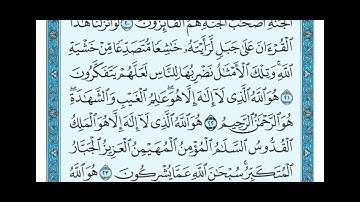 الْجَنَّةِ أَصْحَابُ الْجَنَّةِ هُمُ الْفَائِزُونَ ٢٠ لَوْ أَنزَلْنَا هَٰذَا
الْقُرْءَانَ عَلَىٰ جَبَلٍ لَّرَأَيْتَهُ خَاشِعًا مُّتَصَدِّعًا مِّنْ خَشْيَةِ
اللَّهِ وَتِلْكَ الْأَمْثَالُ نَضْرِبُهَا لِلنَّاسِ لَعَلَّهُمْ يَتَفَكَّرُونَ
٢١ هُوَ اللَّهُ الَّذِي لَا إِلَٰهَ إِلَّا هُوَ عَالِمُ الْغَيْبِ وَالشَّهَادَةِ
هُوَ الرَّحْمَٰنُ الرَّحِيمُ ٢٢ هُوَ اللَّهُ الَّذِي لَا إِلَٰهَ إِلَّا هُوَ الْمَلِكُ
الْقُدُّوسُ السَّلَامُ الْمُؤْمِنُ الْمُهَيْمِنُ الْعَزِيزُ الْجَبَّارُ
الْمُتَكَبِّرُ سُبْحَانَ اللَّهِ عَمَّا يُشْرِكُونَ ٢٣ هُوَ اللَّهُ